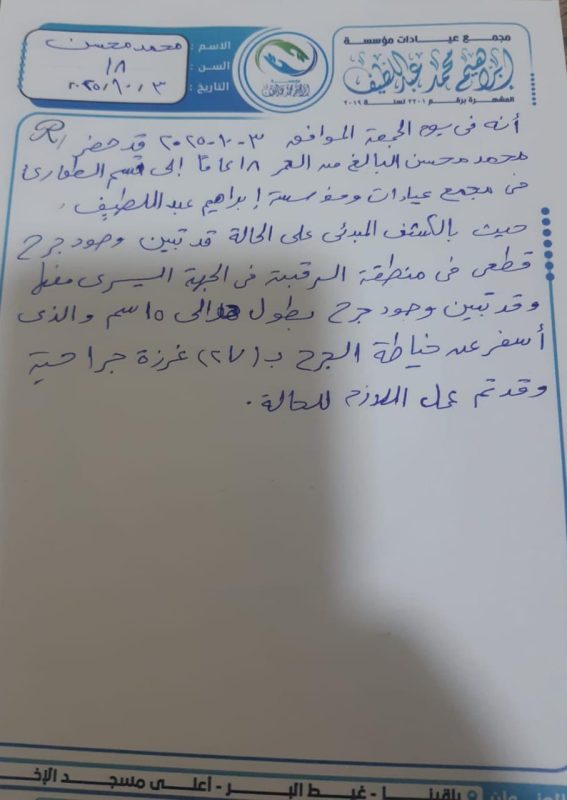 مجمع عيادات مؤسسة
إبراهيم محمد عبداللطيف
المشهرة برقم ٢٢٠١ لسنة ٢٠١٩
الاسم : محمد محسن
السن : ١٨
التاريخ : ٢٠٢٥/١٠/٣
R/
أنه فى يوم الجمعة الموافق ٣-١٠-٢٠٢٥ قد حضر
محمد محسن البالغ من العمر ١٨ عامًا إلى قسم الطوارئ
فى مجمع عيادات ومؤسسة إبراهيم عبد اللطيف ،
حيث بالكشف المبدئى على الحالة قد تبين وجود جرح
قطعى فى منطقة الرقبة فى الجهة اليسرى
وقد تبين وجود جرح بطول حوالى ١٥ سم والذى
أسفر عن خياطة الجرح ب (٢٧) غرزة جراحية
وقد تم عمل اللازم للحالة .
العنوان باقينا - غيط البر - أعلى مسجد الإخ